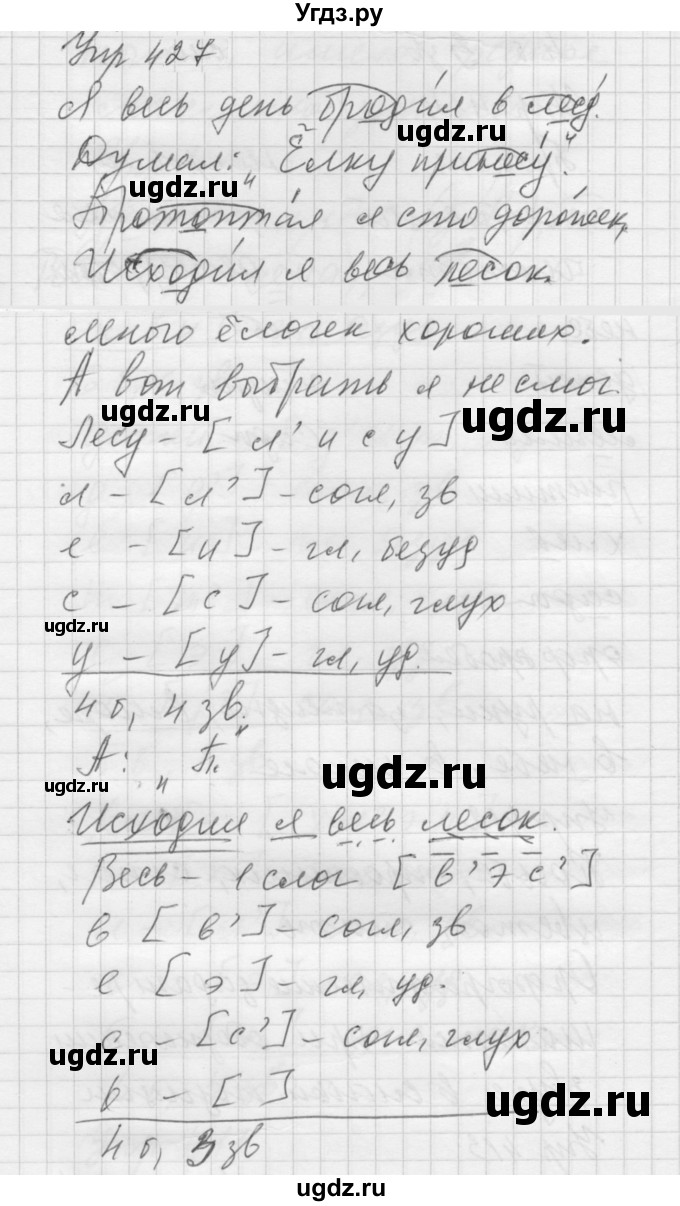 Угдз.ру
Упр 427
Я весь день бродил в лесу.
ugdz.ru
Думал: „Ёлку принесу".
ugdz.ru
Протоптал я сто дорожек,
Исходил я весь лесок.
много ёлочек хороших.
А вот выбрать я не смог.
ugdz.ru ugdz.ru
Лесу - [л' и с у]
л - [л'] - согл, зв
е - [и] - гл, безуд
с - [с] - согл, глух
ugdz.ru
у - [у] - гл, уд.
4 б, 4 зв.
А: „П."
ugdz.ru ugdz.ru
Исходил я весь лесок.
Весь - 1 слог [в' э с']
в [в'] - согл, зв
е [э] - гл, уд.
с - [с'] - согл, глух
ugdz.ru
ь - [ ]
ugdz.ru
4 б, 3 зв
ugdz.ru